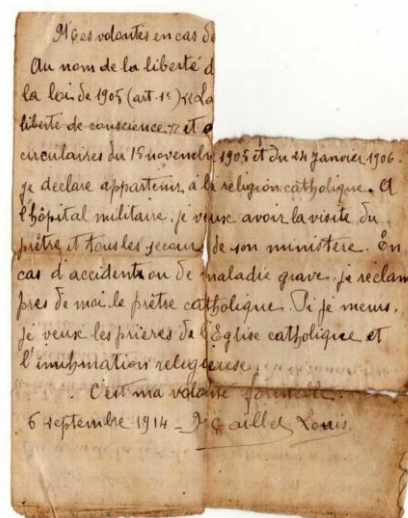 Mes volontés en cas de
Au nom de la liberté d
la loi de 1905 (art. 1er) « La
liberté de conscience » et
circulaires du 15 novembre 1905 et du 24 janvier 1906.
je déclare appartenir à la religion catholique. A
l'hôpital militaire, je veux avoir la visite du
prêtre et tous les secours de son ministère. En
cas d'accident ou de maladie grave, je réclam
près de moi le prêtre catholique. Si je meurs,
je veux les prières de l'Eglise catholique et
l'inhumation religieuse.
C'est ma volonté formelle.
6 septembre 1914 - Louis